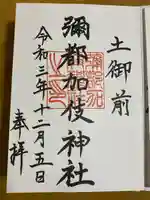 土御前
彌都加伎神社
令和三年十二月五日
奉拝